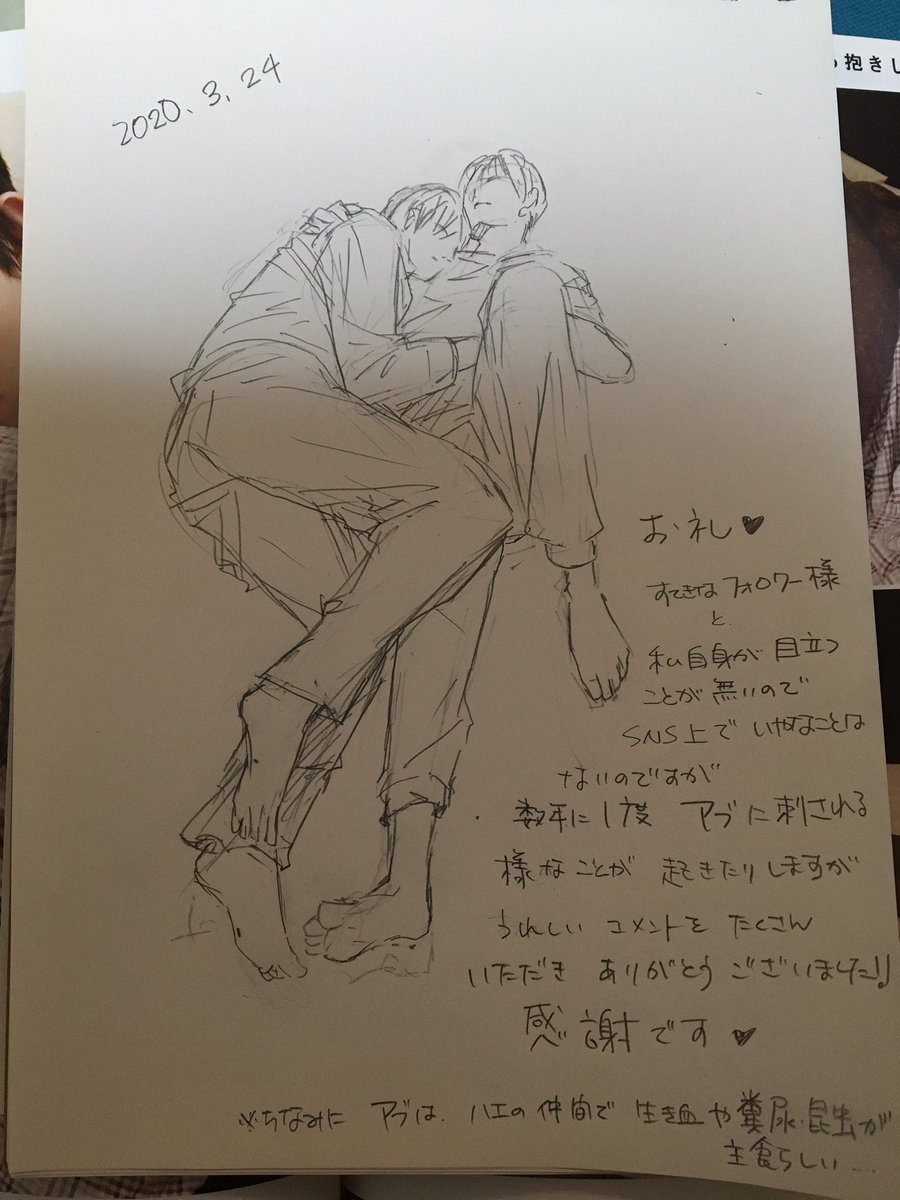 2020.3.24
抱きし
お礼♥
すてきなフォロワー様
と
私自身が目立つ
ことが無いので
SNS上でいやなことは
ないのですが
数年に1度 アブに刺される
様なことが 起きたりしますが
うれしい コメントを たくさん
いただき ありがとう ございました!!
感謝です♥
※ちなみに アブは、ハエの仲間で 生き血や糞尿、昆虫が
主食らしい……